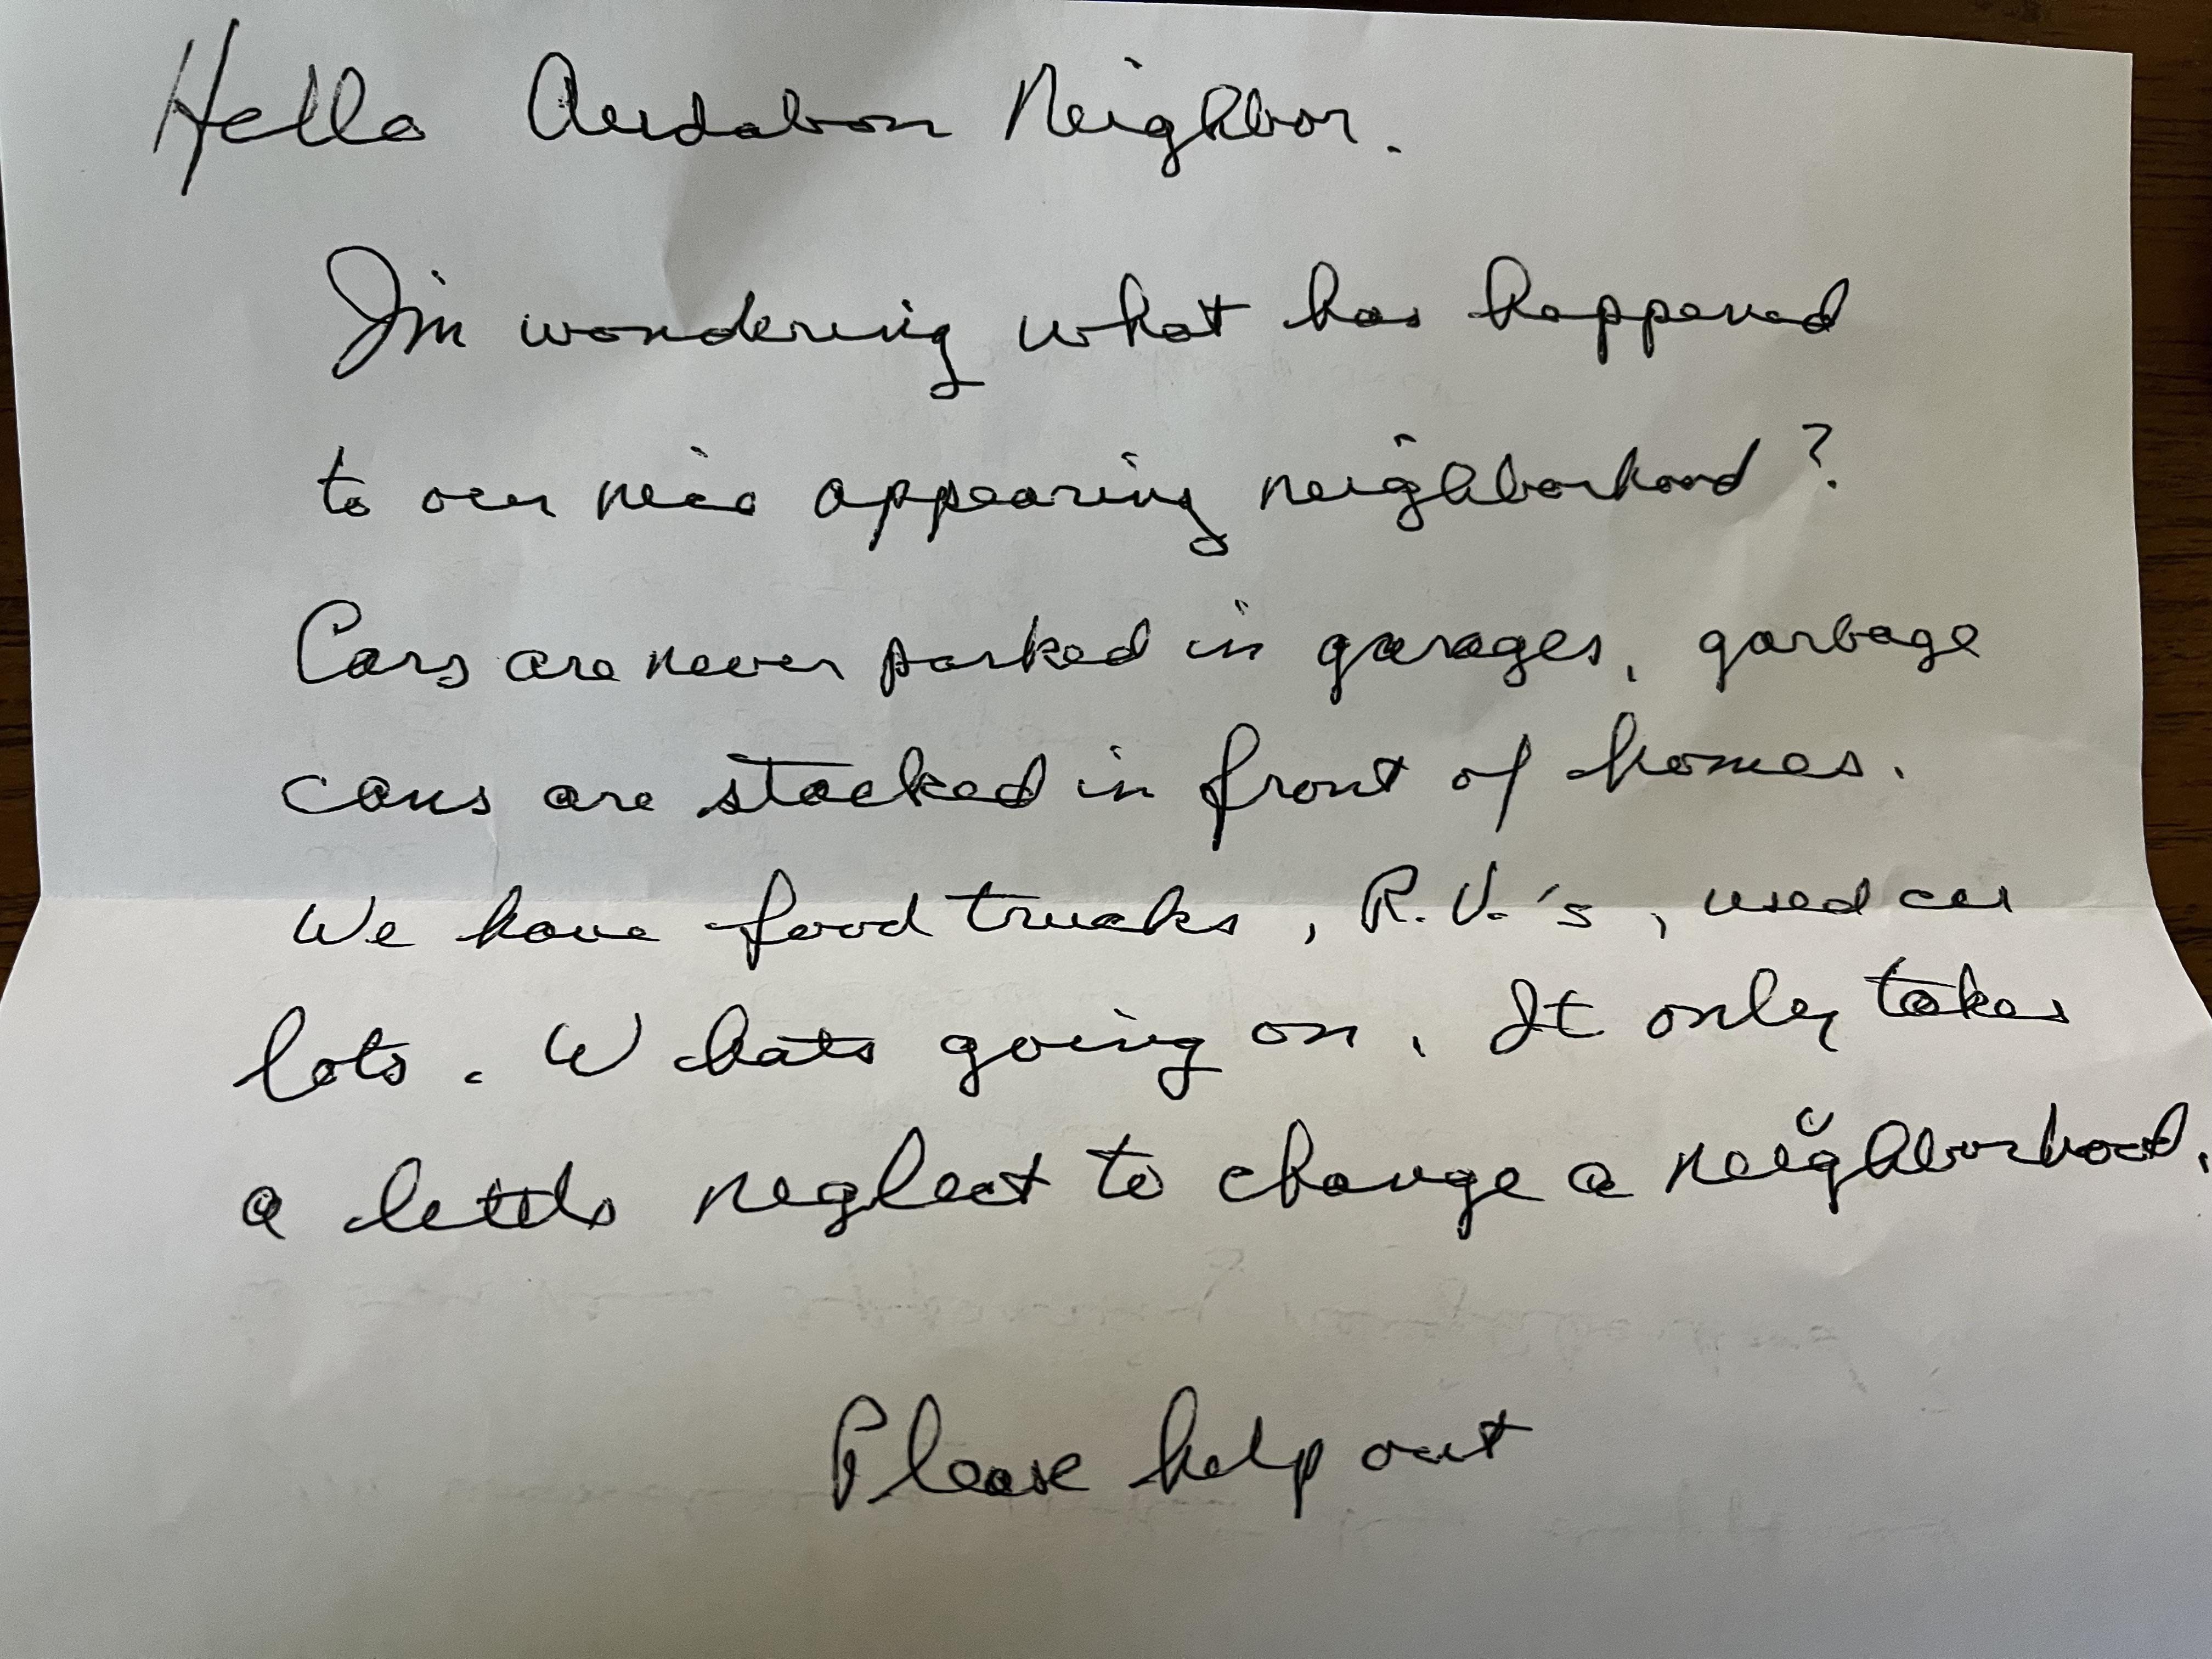 Hello Audabon Neighbor.
I'm wondering what has happened
to our nice appearing neighborhood?
Cars are never parked in garages, garbage
cans are stacked in front of homes.
We have food trucks, R.V.'s, used car
lots. Whats going on. It only takes
a little neglect to change a neighborhood.
Please help out